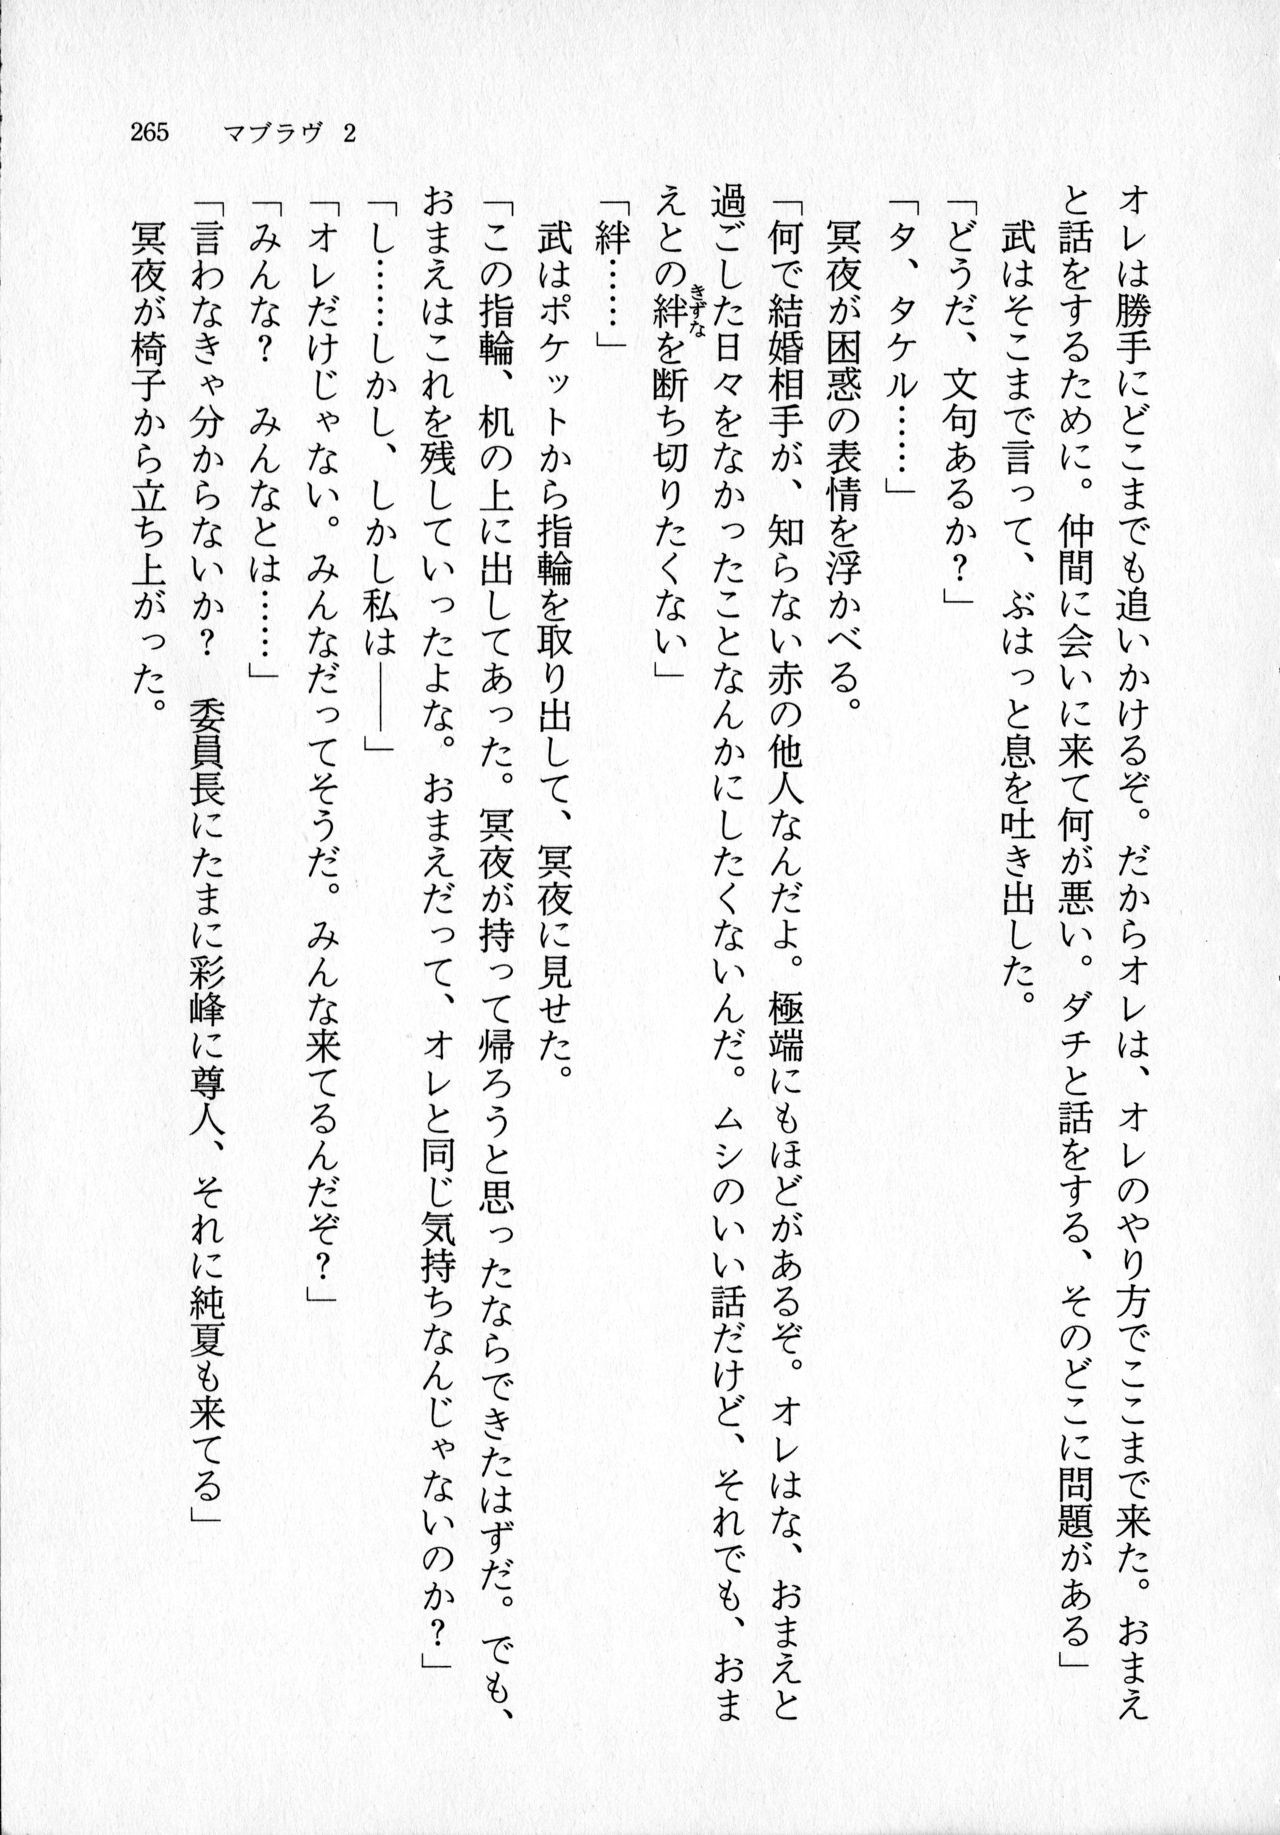 265　マブラヴ 2
オレは勝手にどこまでも追いかけるぞ。だからオレは、オレのやり方でここまで来た。おまえ
と話をするために。仲間に会いに来て何が悪い。ダチと話をする、そのどこに問題がある」
　武はそこまで言って、ぶはっと息を吐き出した。
「どうだ、文句あるか？」
「タ、タケル……」
　冥夜が困惑の表情を浮かべる。
「何で結婚相手が、知らない赤の他人なんだよ。極端にもほどがあるぞ。オレはな、おまえと
過ごした日々をなかったことなんかにしたくないんだ。ムシのいい話だけど、それでも、おま
えとの絆きずなを断ち切りたくない」
「絆……」
　武はポケットから指輪を取り出して、冥夜に見せた。
「この指輪、机の上に出してあった。冥夜が持って帰ろうと思ったならできたはずだ。でも、
おまえはこれを残していったよな。おまえだって、オレと同じ気持ちなんじゃないのか？」
「し……しかし、しかし私は――」
「オレだけじゃない。みんなだってそうだ。みんな来てるんだぞ？」
「みんな？　みんなとは……」
「言わなきゃ分からないか？　委員長にたまに彩峰に尊人、それに純夏も来てる」
　冥夜が椅子から立ち上がった。